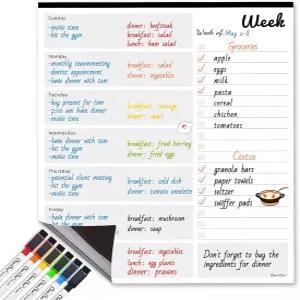 Week
Week of: May 2-8
Sunday
- movie time
- hit the gym
dinner: beefsteak
breakfast: salad
lunch: ham salad
Monday
- monthly teammeeting
- dentist appointment
- have dinner with tom
breakfast: salad
dinner: vegetables
Tuesday
- buy present for tom
- 7:00 am have dinner
- movie time
breakfast: sausage
dinner:
Wednesday
- have dinner with tom
- hit the gym
breakfast: fried herring
dinner: fried eggs
Thursday
- potential client meeting
- hit the gym
breakfast: cold dish
dinner: tomato omelette
Friday
- have dinner with
- movie time
breakfast: mushroom
dinner: soup
breakfast: vegetables
lunch: egg plants
dinner: prawns
Groceries
apple
eggs
milk
pasta
cereal
chicken
tomatoes
Costco
granola bars
paper towels
seltzer
swiffer pads
Don't forget to buy the
ingredients for dinner